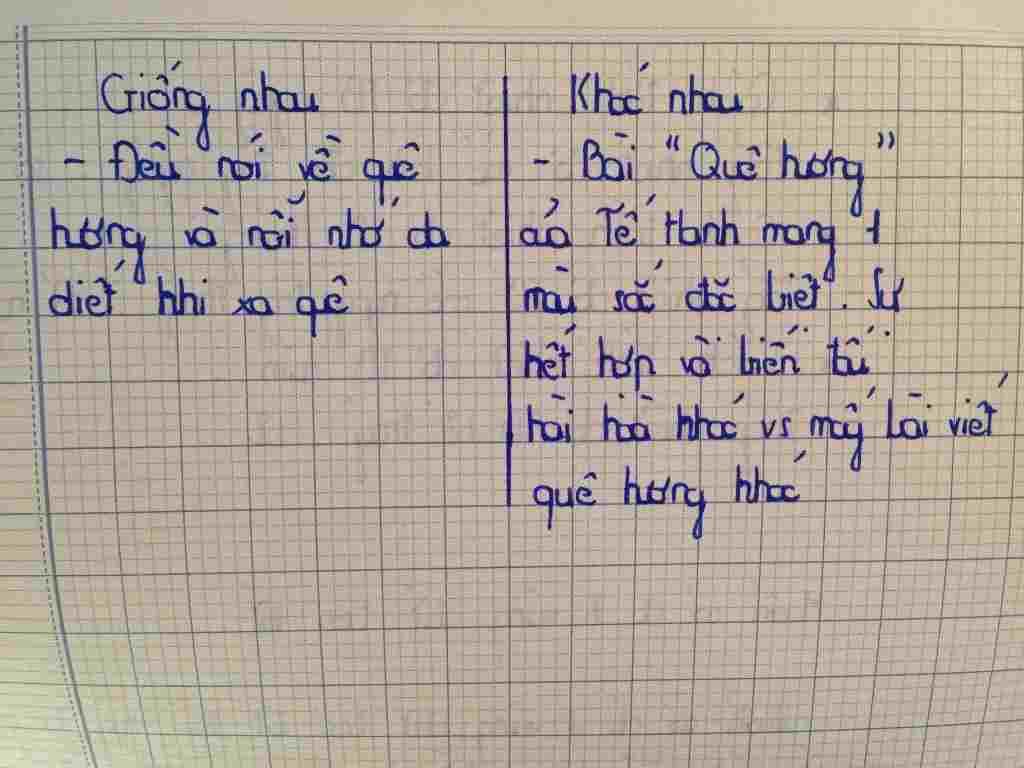 Giống nhau
- Đều nói về quê
hương và nỗi nhớ da
diết khi xa quê
Khác nhau
- Bài "Quê hương"
của Tế Hanh mang 1
màu sắc đặc biệt. Sự
kết hợp và biến tấu
hài hoà khác vs mấy bài viết
quê hương khác